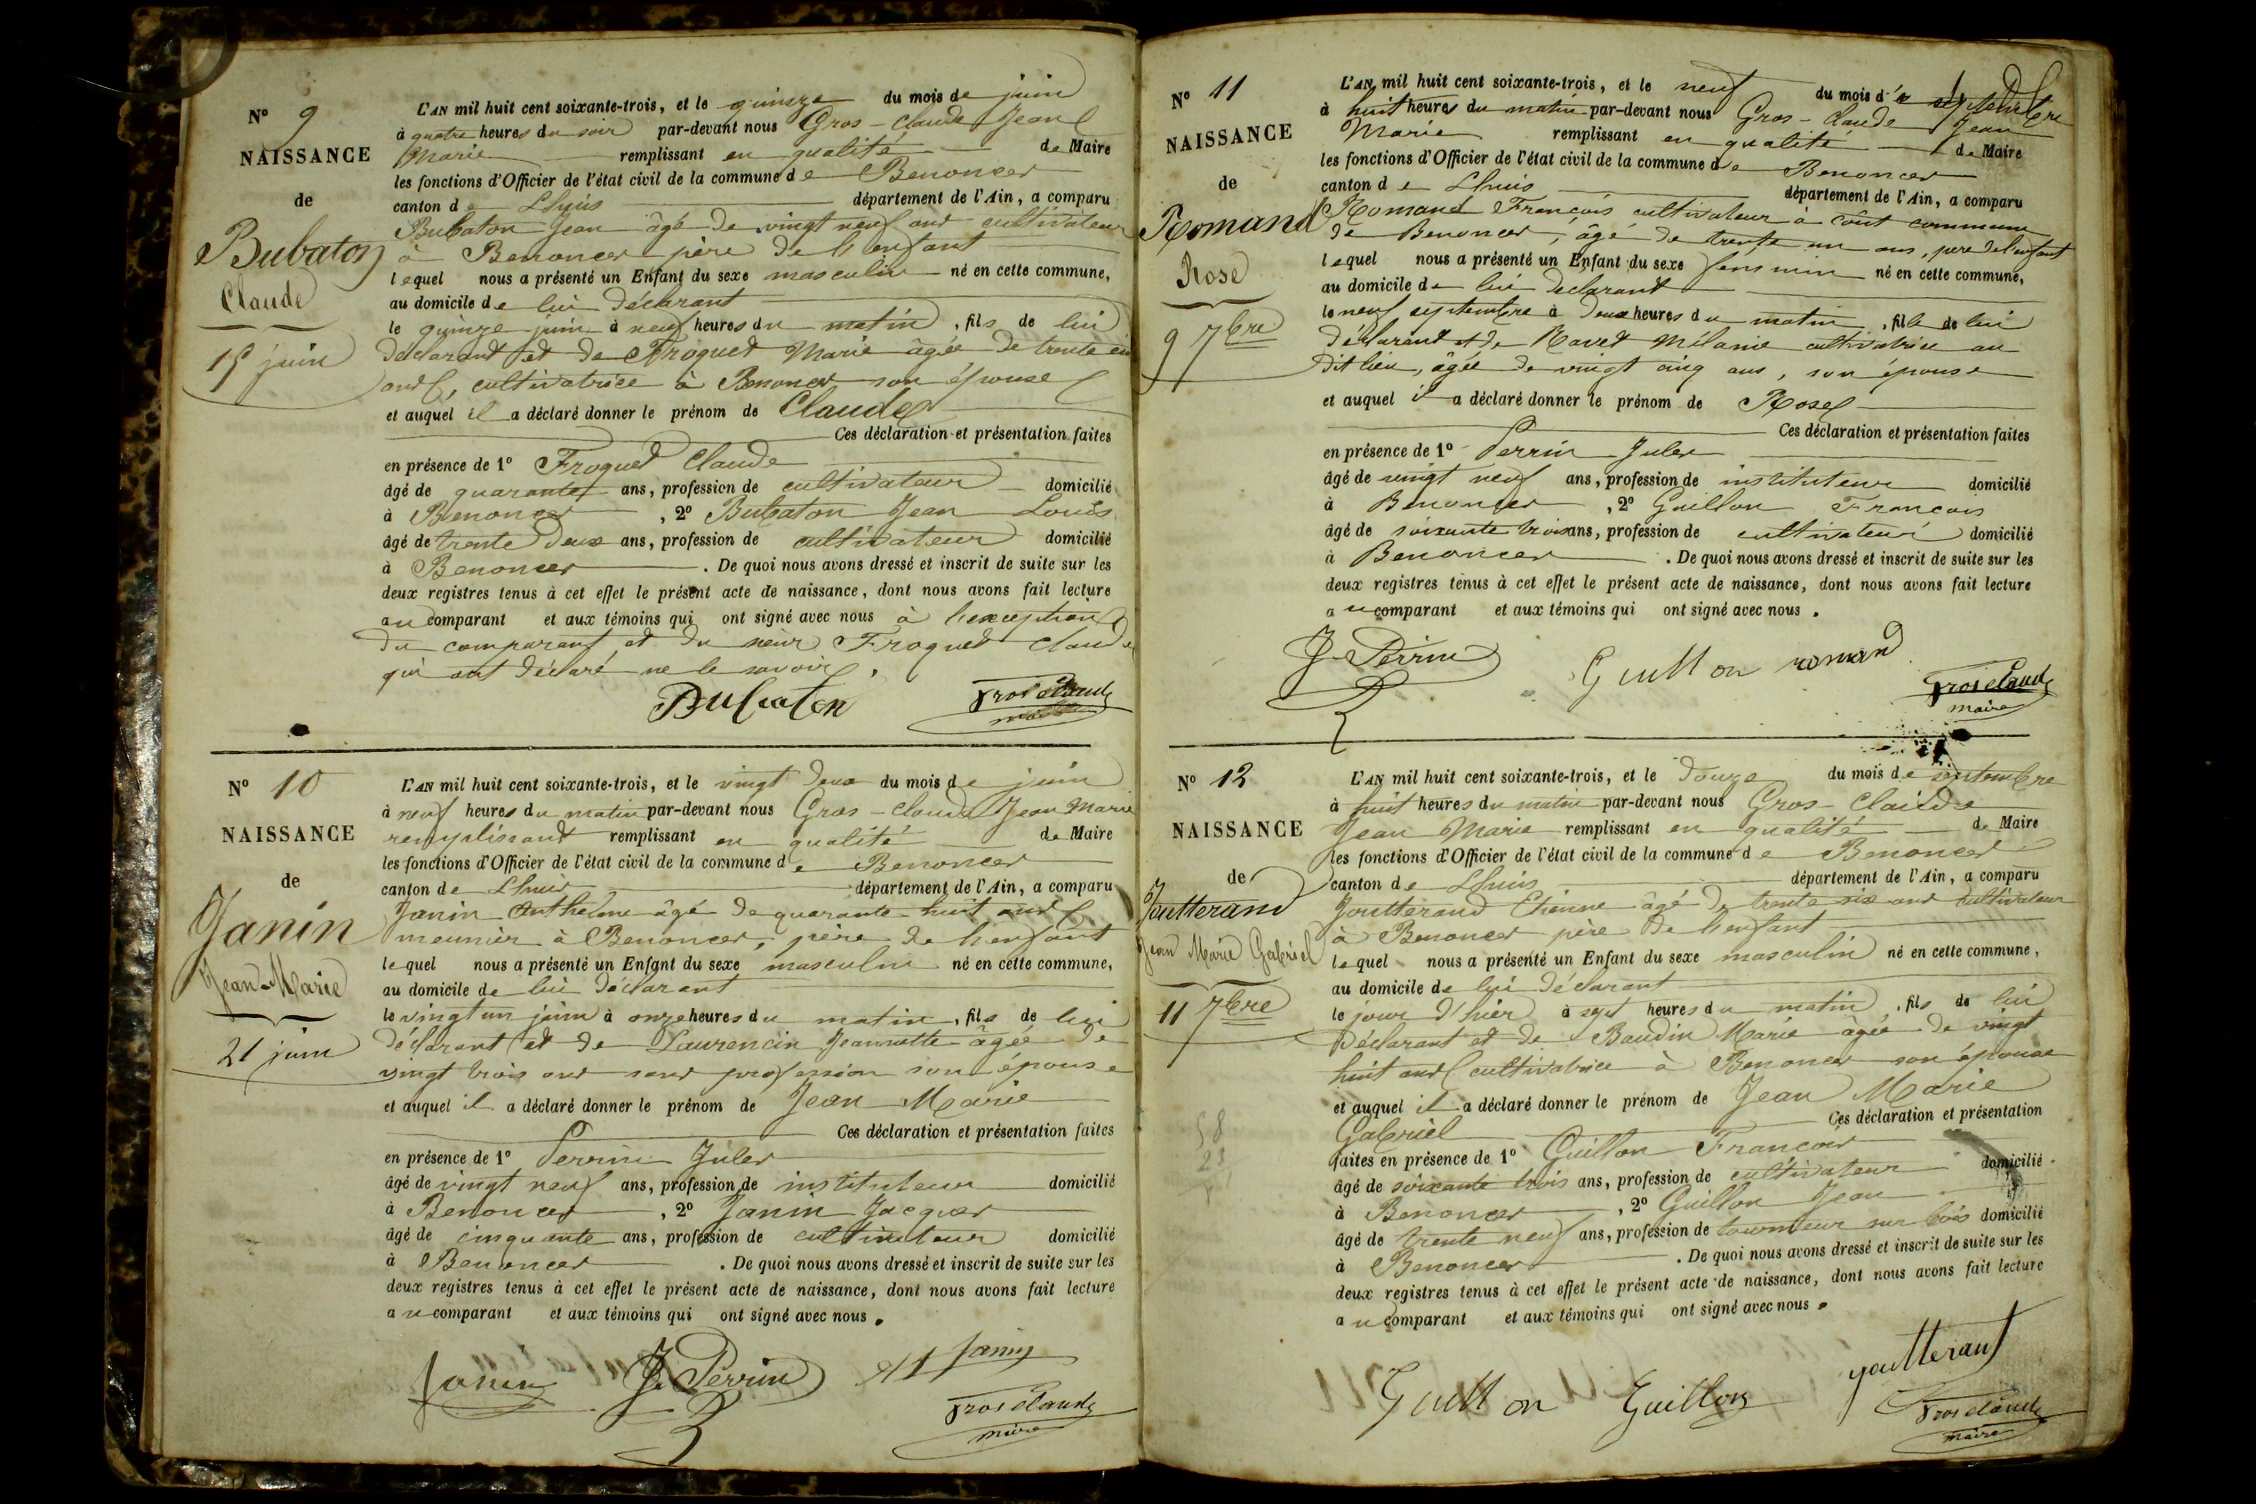 N° 9
NAISSANCE
de
Bubaton
Claude
15 juin
L'AN mil huit cent soixante-trois, et le quinze du mois de juin
à quatre heures du soir par-devant nous Gros-Claude Jean
Marie remplissant en qualité de Maire
les fonctions d'Officier de l'état civil de la commune de Benonces
canton de Lhuis département de l'Ain, a comparu
Bubaton Jean âgé de vingt neuf ans cultivateur
à Benonces père de l'enfant
lequel nous a présenté un Enfant du sexe masculin né en cette commune,
au domicile de lui déclarant
le quinze juin à neuf heures du matin, fils de lui
déclarant et de Froquet Marie âgée de trente
ans, cultivatrice à Benonces son épouse
et auquel il a déclaré donner le prénom de Claude
Ces déclaration et présentation faites
en présence de 1° Froquet Claude
âgé de quarante ans, profession de cultivateur domicilié
à Benonces, 2° Bubaton Jean Louis
âgé de trente deux ans, profession de cultivateur domicilié
à Benonces. De quoi nous avons dressé et inscrit de suite sur les
deux registres tenus à cet effet le présent acte de naissance, dont nous avons fait lecture
au comparant et aux témoins qui ont signé avec nous à l'exception
du comparant et du sieur Froquet Claude
qui ont déclaré ne le savoir.
Bubaton Grosclaude
maire
N° 10
NAISSANCE
de
Janin
Jean-Marie
21 juin
L'AN mil huit cent soixante-trois, et le vingt deux du mois de juin
à neuf heures du matin par-devant nous Gros-Claude Jean Marie
remplissant remplissant en qualité de Maire
les fonctions d'Officier de l'état civil de la commune de Benonces
canton de Lhuis département de l'Ain, a comparu
Janin Anthelme âgé de quarante huit ans
meunier à Benonces, père de l'enfant
lequel nous a présenté un Enfant du sexe masculin né en cette commune,
au domicile de lui déclarant
le vingt un juin à onze heures du matin, fils de lui
déclarant et de Laurencin Jeannette âgée de
vingt trois ans sans profession son épouse
et auquel il a déclaré donner le prénom de Jean Marie
Ces déclaration et présentation faites
en présence de 1° Perrin Jules
âgé de vingt neuf ans, profession de instituteur domicilié
à Benonces, 2° Janin Jacques
âgé de cinquante ans, profession de cultivateur domicilié
à Benonces. De quoi nous avons dressé et inscrit de suite sur les
deux registres tenus à cet effet le présent acte de naissance, dont nous avons fait lecture
au comparant et aux témoins qui ont signé avec nous.
Janin J. Perrin Janin
Grosclaude
maire
N° 11
NAISSANCE
de
Romand
Rose
9 7bre
L'AN mil huit cent soixante-trois, et le neuf du mois de septembre
à huit heures du matin par-devant nous Gros-Claude Jean
Marie remplissant en qualité de Maire
les fonctions d'Officier de l'état civil de la commune de Benonces
canton de Lhuis département de l'Ain, a comparu
Romand François cultivateur à coût commune
de Benonces, âgé de trente un ans, père de l'enfant
lequel nous a présenté un Enfant du sexe féminin né en cette commune,
au domicile de lui déclarant
le neuf septembre à deux heures du matin, fille de lui
déclarant et de Ravet Mélanie cultivatrice au
dit lieu, âgée de vingt cinq ans, son épouse
et auquel il a déclaré donner le prénom de Rose
Ces déclaration et présentation faites
en présence de 1° Perrin Jules
âgé de vingt neuf ans, profession de instituteur domicilié
à Benonces, 2° Guillon François
âgé de soixante trois ans, profession de cultivateur domicilié
à Benonces. De quoi nous avons dressé et inscrit de suite sur les
deux registres tenus à cet effet le présent acte de naissance, dont nous avons fait lecture
au comparant et aux témoins qui ont signé avec nous.
J. Perrin Guillon romand
Grosclaude
maire
N° 12
NAISSANCE
de
Joutterand
Jean Marie Gabriel
11 7bre
L'AN mil huit cent soixante-trois, et le douze du mois de septembre
à huit heures du matin par-devant nous Gros-Claude
Jean Marie remplissant en qualité de Maire
les fonctions d'Officier de l'état civil de la commune de Benonces
canton de Lhuis département de l'Ain, a comparu
Joutterand Etienne âgé de trente six ans cultivateur
à Benonces père de l'enfant
lequel nous a présenté un Enfant du sexe masculin né en cette commune,
au domicile de lui déclarant
le jour d'hier à sept heures du matin, fils de lui
déclarant et de Baudin Marie âgée de vingt
huit ans cultivatrice à Benonces son épouse
et auquel il a déclaré donner le prénom de Jean Marie
Gabriel Ces déclaration et présentation
faites en présence de 1° Guillon François
âgé de soixante trois ans, profession de cultivateur domicilié
à Benonces, 2° Guillon Jean
âgé de trente neuf ans, profession de tourneur sur bois domicilié
à Benonces. De quoi nous avons dressé et inscrit de suite sur les
deux registres tenus à cet effet le présent acte de naissance, dont nous avons fait lecture
au comparant et aux témoins qui ont signé avec nous.
joutterant
Guillon Guillon
Grosclaude
maire